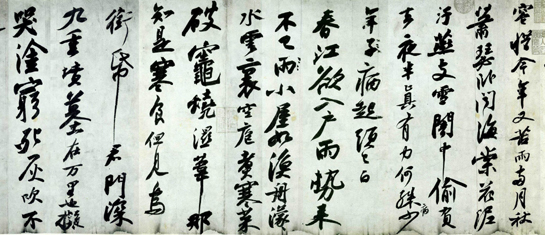 容惜今年又苦雨兩月秋
蕭瑟卧聞海棠花泥
汙燕支雪闇中偷負
去夜半真有力何殊病少
年子病起頭已白
春江欲入戶雨勢來
不已雨小屋如漁舟濛濛
水雲裏空庖煮寒菜
破竈燒濕葦那
知是寒食但見烏
銜帋君門深
九重墳墓在万里也擬
哭塗窮死灰吹不